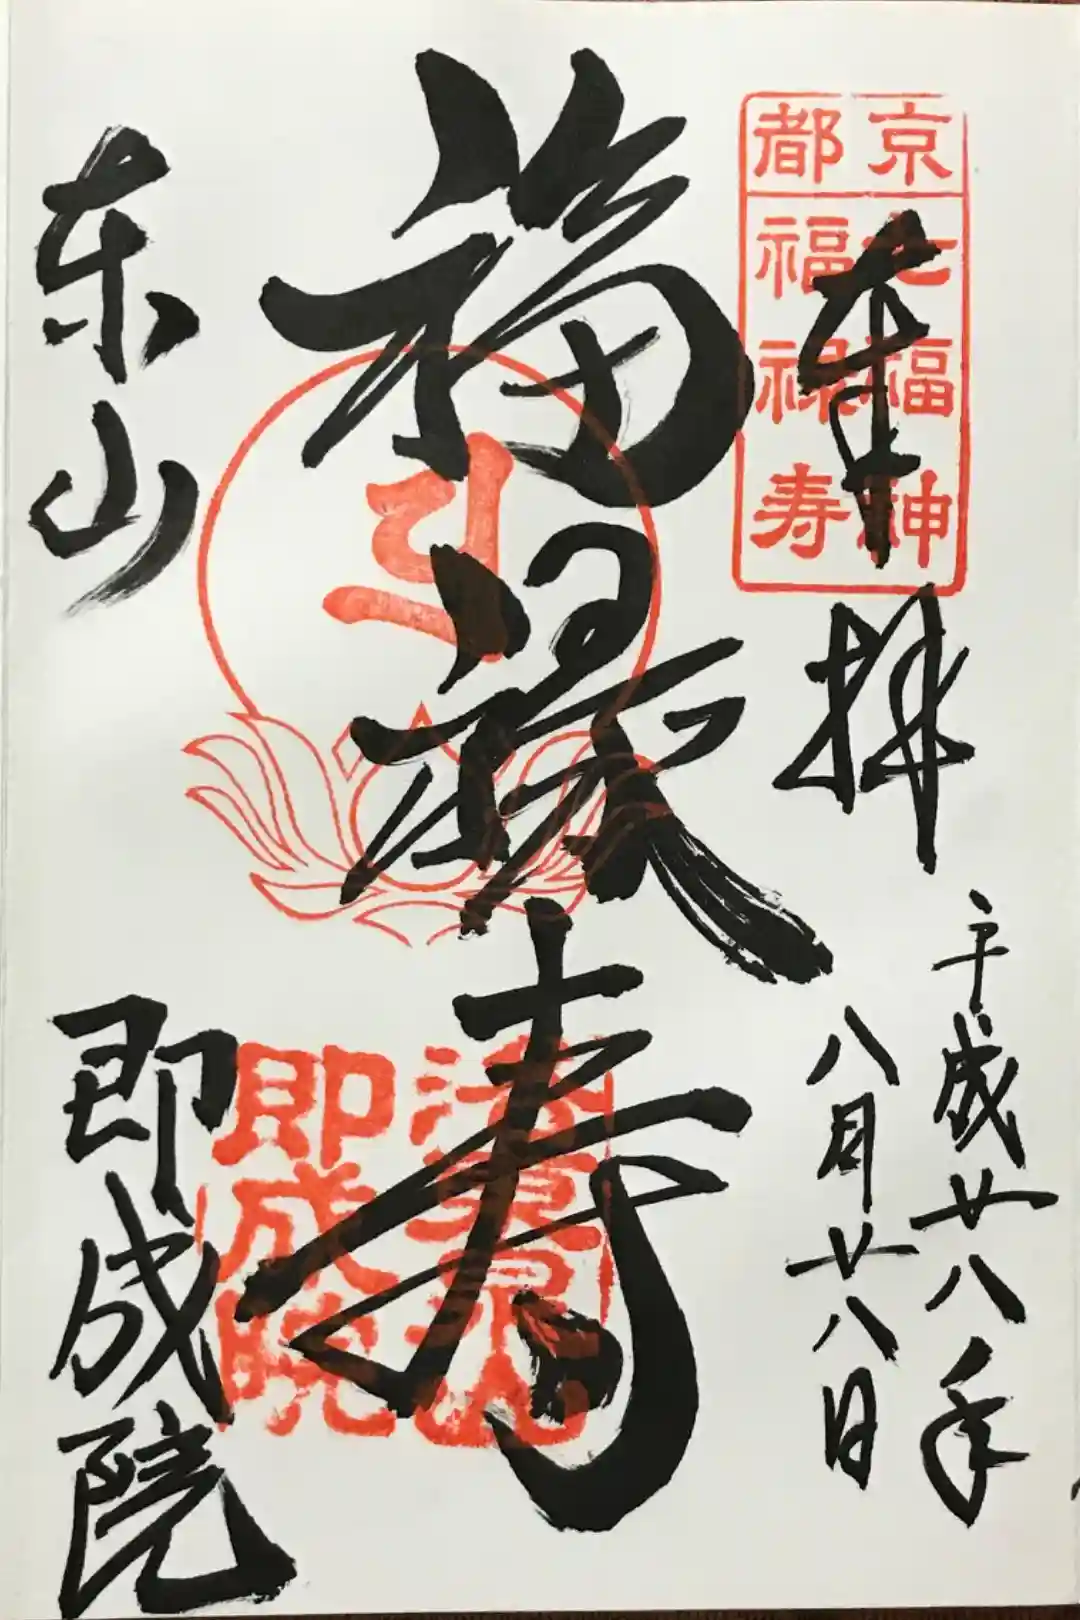 京都
七福神
福禄寿
奉拝
平成廿八年
八月廿八日
福禄寿
即成院
东山
即成院